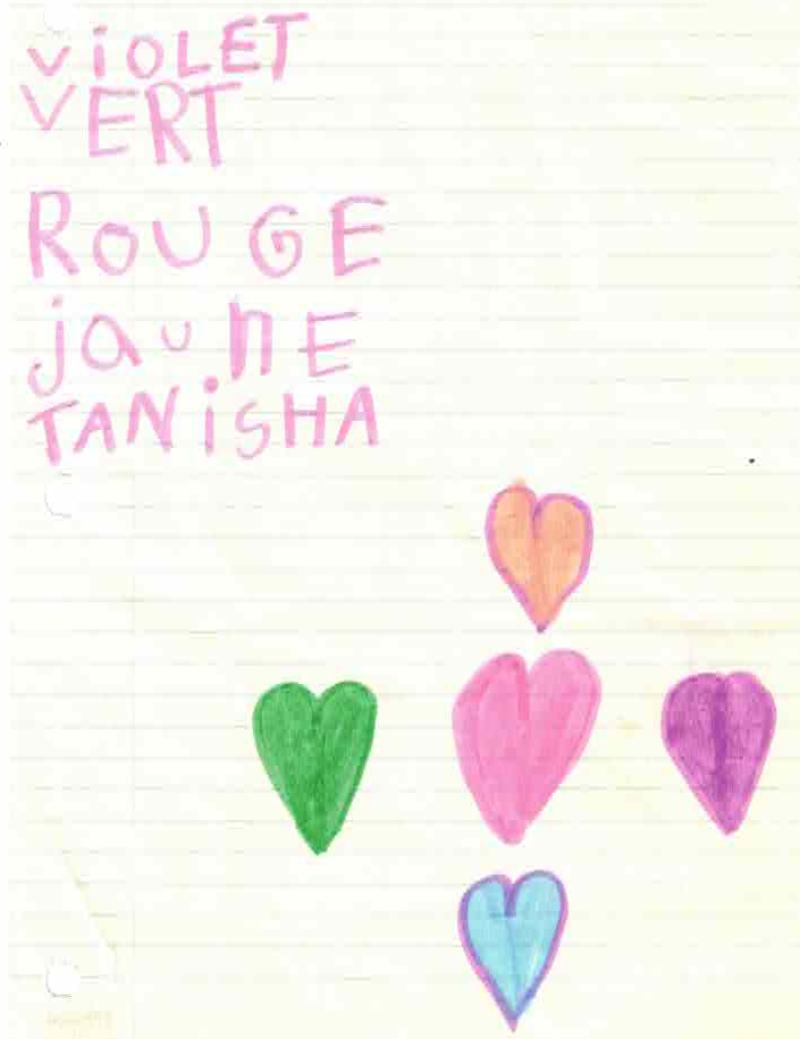 ViOLET
VERT
ROUGE
jaunE
TANiSHA